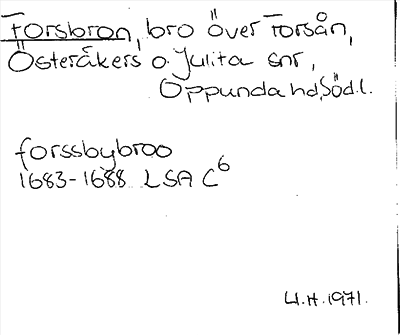 Forsbron, bro över Forsån,
Österåkers o. Julita snr,
Oppunda hd, Södl.
forssbybroo
1683-1688 LSA C6
U.H. 1971.